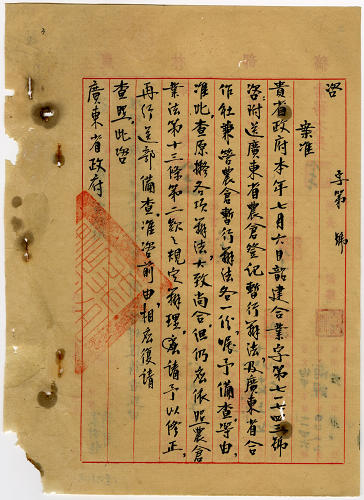 咨
字第 號
案准
貴省政府本年七月六日韶建合業字第七一四三號
咨附送廣東省農倉登記暫行辦法及廣東省合
作社兼營農倉暫行辦法各一份囑予備查等由，
准此查原擬各項辦法，大致尚合但仍應依照農倉
業法第十三條第二款之規定辦理。爰請予以修正，
再行送部備查。准咨前由，相應復請
查照。此咨
廣東省政府